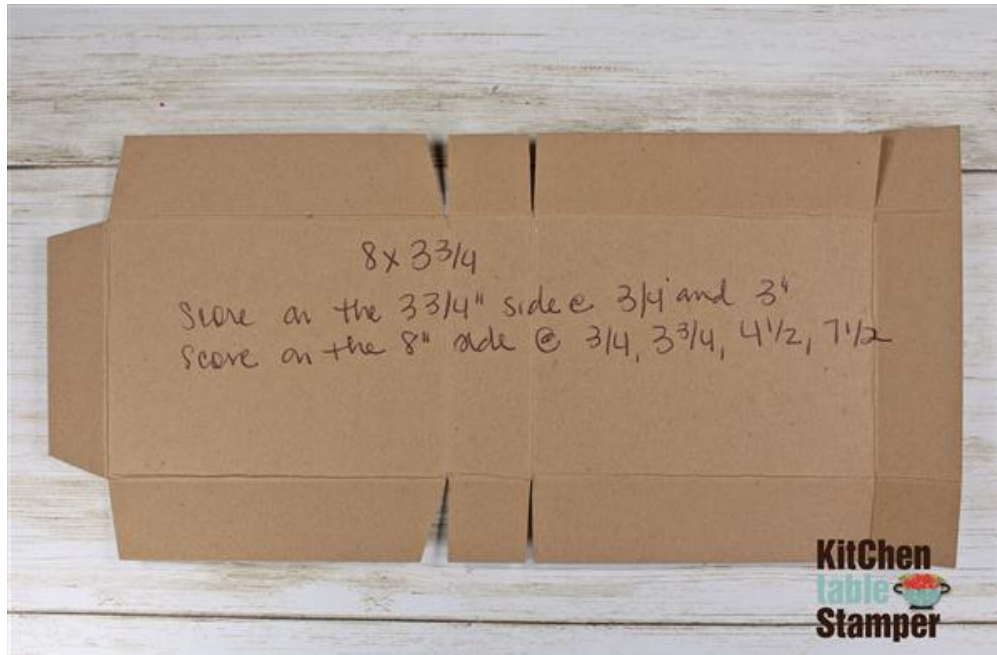 8 x 3 3/4
Score on the 3 3/4" side @ 3/4 and 3"
Score on the 8" side @ 3/4, 3 3/4, 4 1/2, 7 1/2
KitChen
table
Stamper